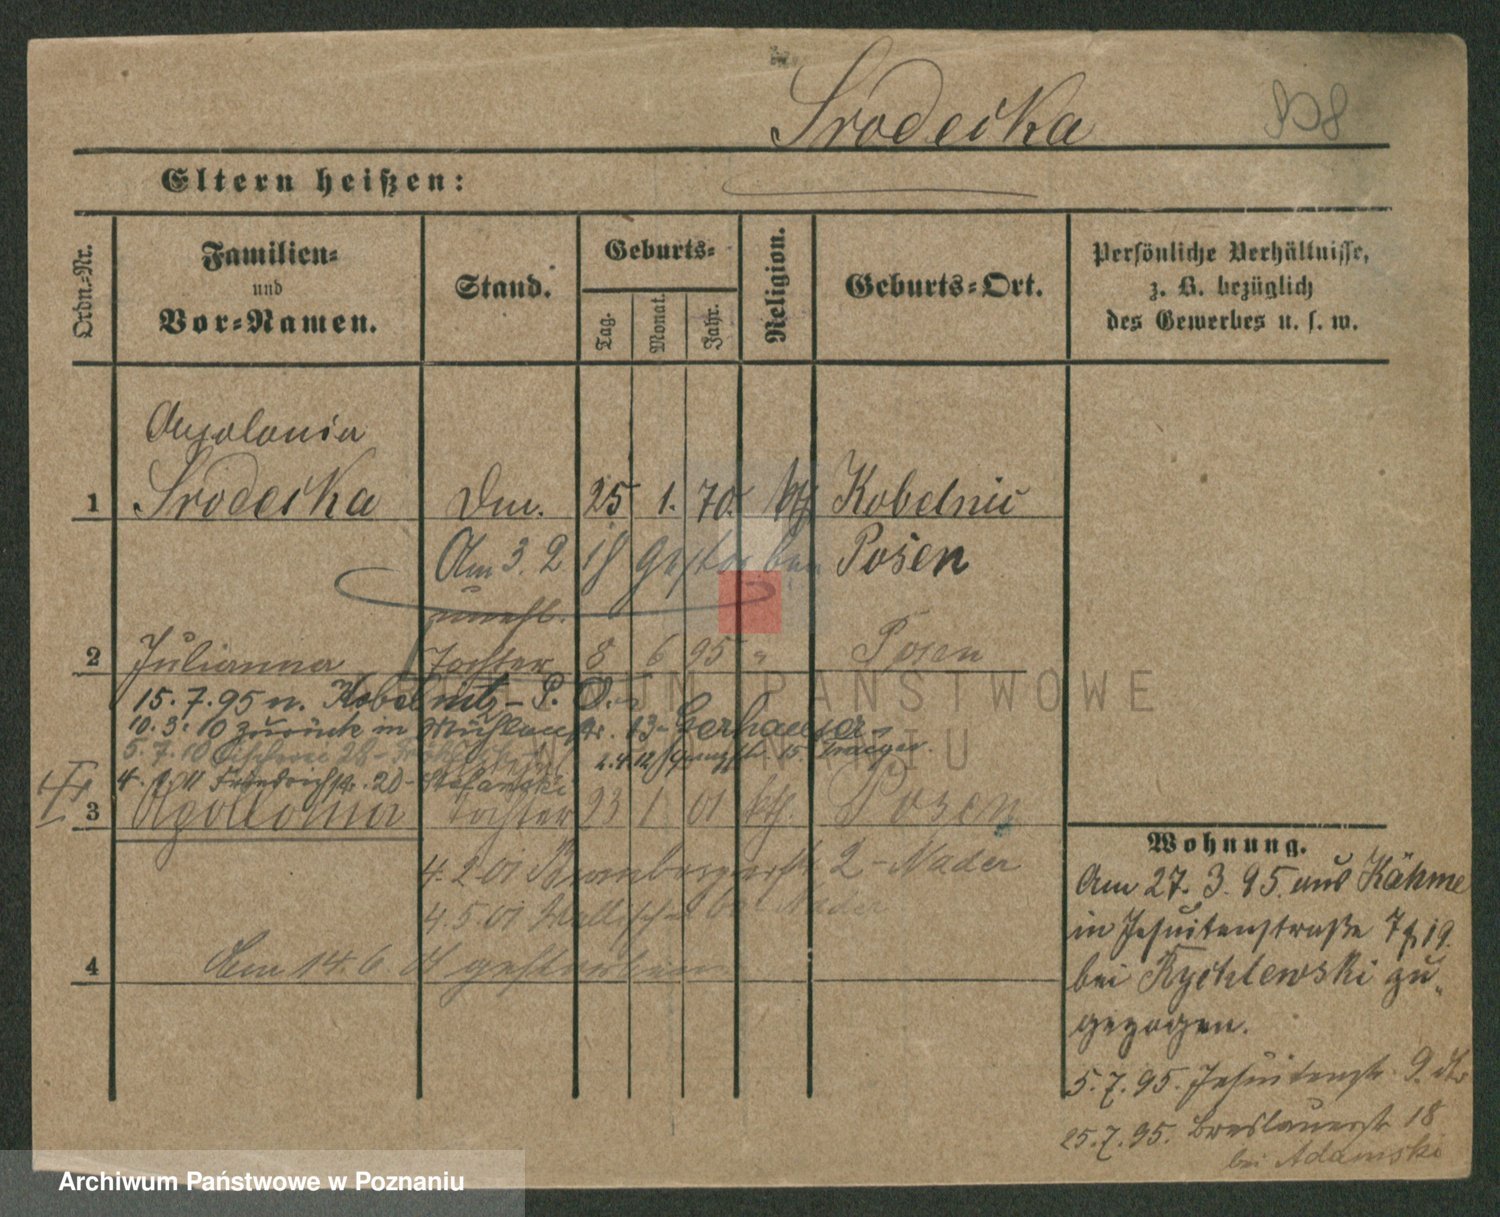 Srodecka
Eltern heißen:
Ordn.-Nr.
Familien- und Vor-Namen.
Stand.
Geburts-
Tag.
Monat.
Jahr.
Religion.
Geburts-Ort.
Persönliche Verhältnisse,
z. B. bezüglich
des Gewerbes u. s. w.
Apolonia
1 Srodecka 25 1. 70. kth Kobelnic
Am 3. 2. Posen
unehl.
2 Julianna Tochter 8 6 95 " Posen
15. 7. 95 n. Kobelnitz - P. O.
10. 3. 10 zurück in 13 - Gerhauser
5. 7. 10 28 -
2. 4. 12 15. Traeger.
4. 1. 11 Friedrichstr. 20 - Stefanski
3 Apollonia Tochter 23 1 01 kth. Posen
4. 2 01 2 - Nader
4. 5. 01 Wallischei bei Nader
4 Am 14. 6. 01 gestorben
Wohnung.
Am 27. 3. 95. aus Kähme
in Jesuitenstraße 7 19.
bei Rychlewski zu-
gezogen.
5. 7. 95. Jesuitenstr. 9.
25. 7. 95. Breslauerstr 18
bei Adamski
ARCHIWUM PAŃSTWOWE
W POZNANIU
Archiwum Państwowe w Poznaniu